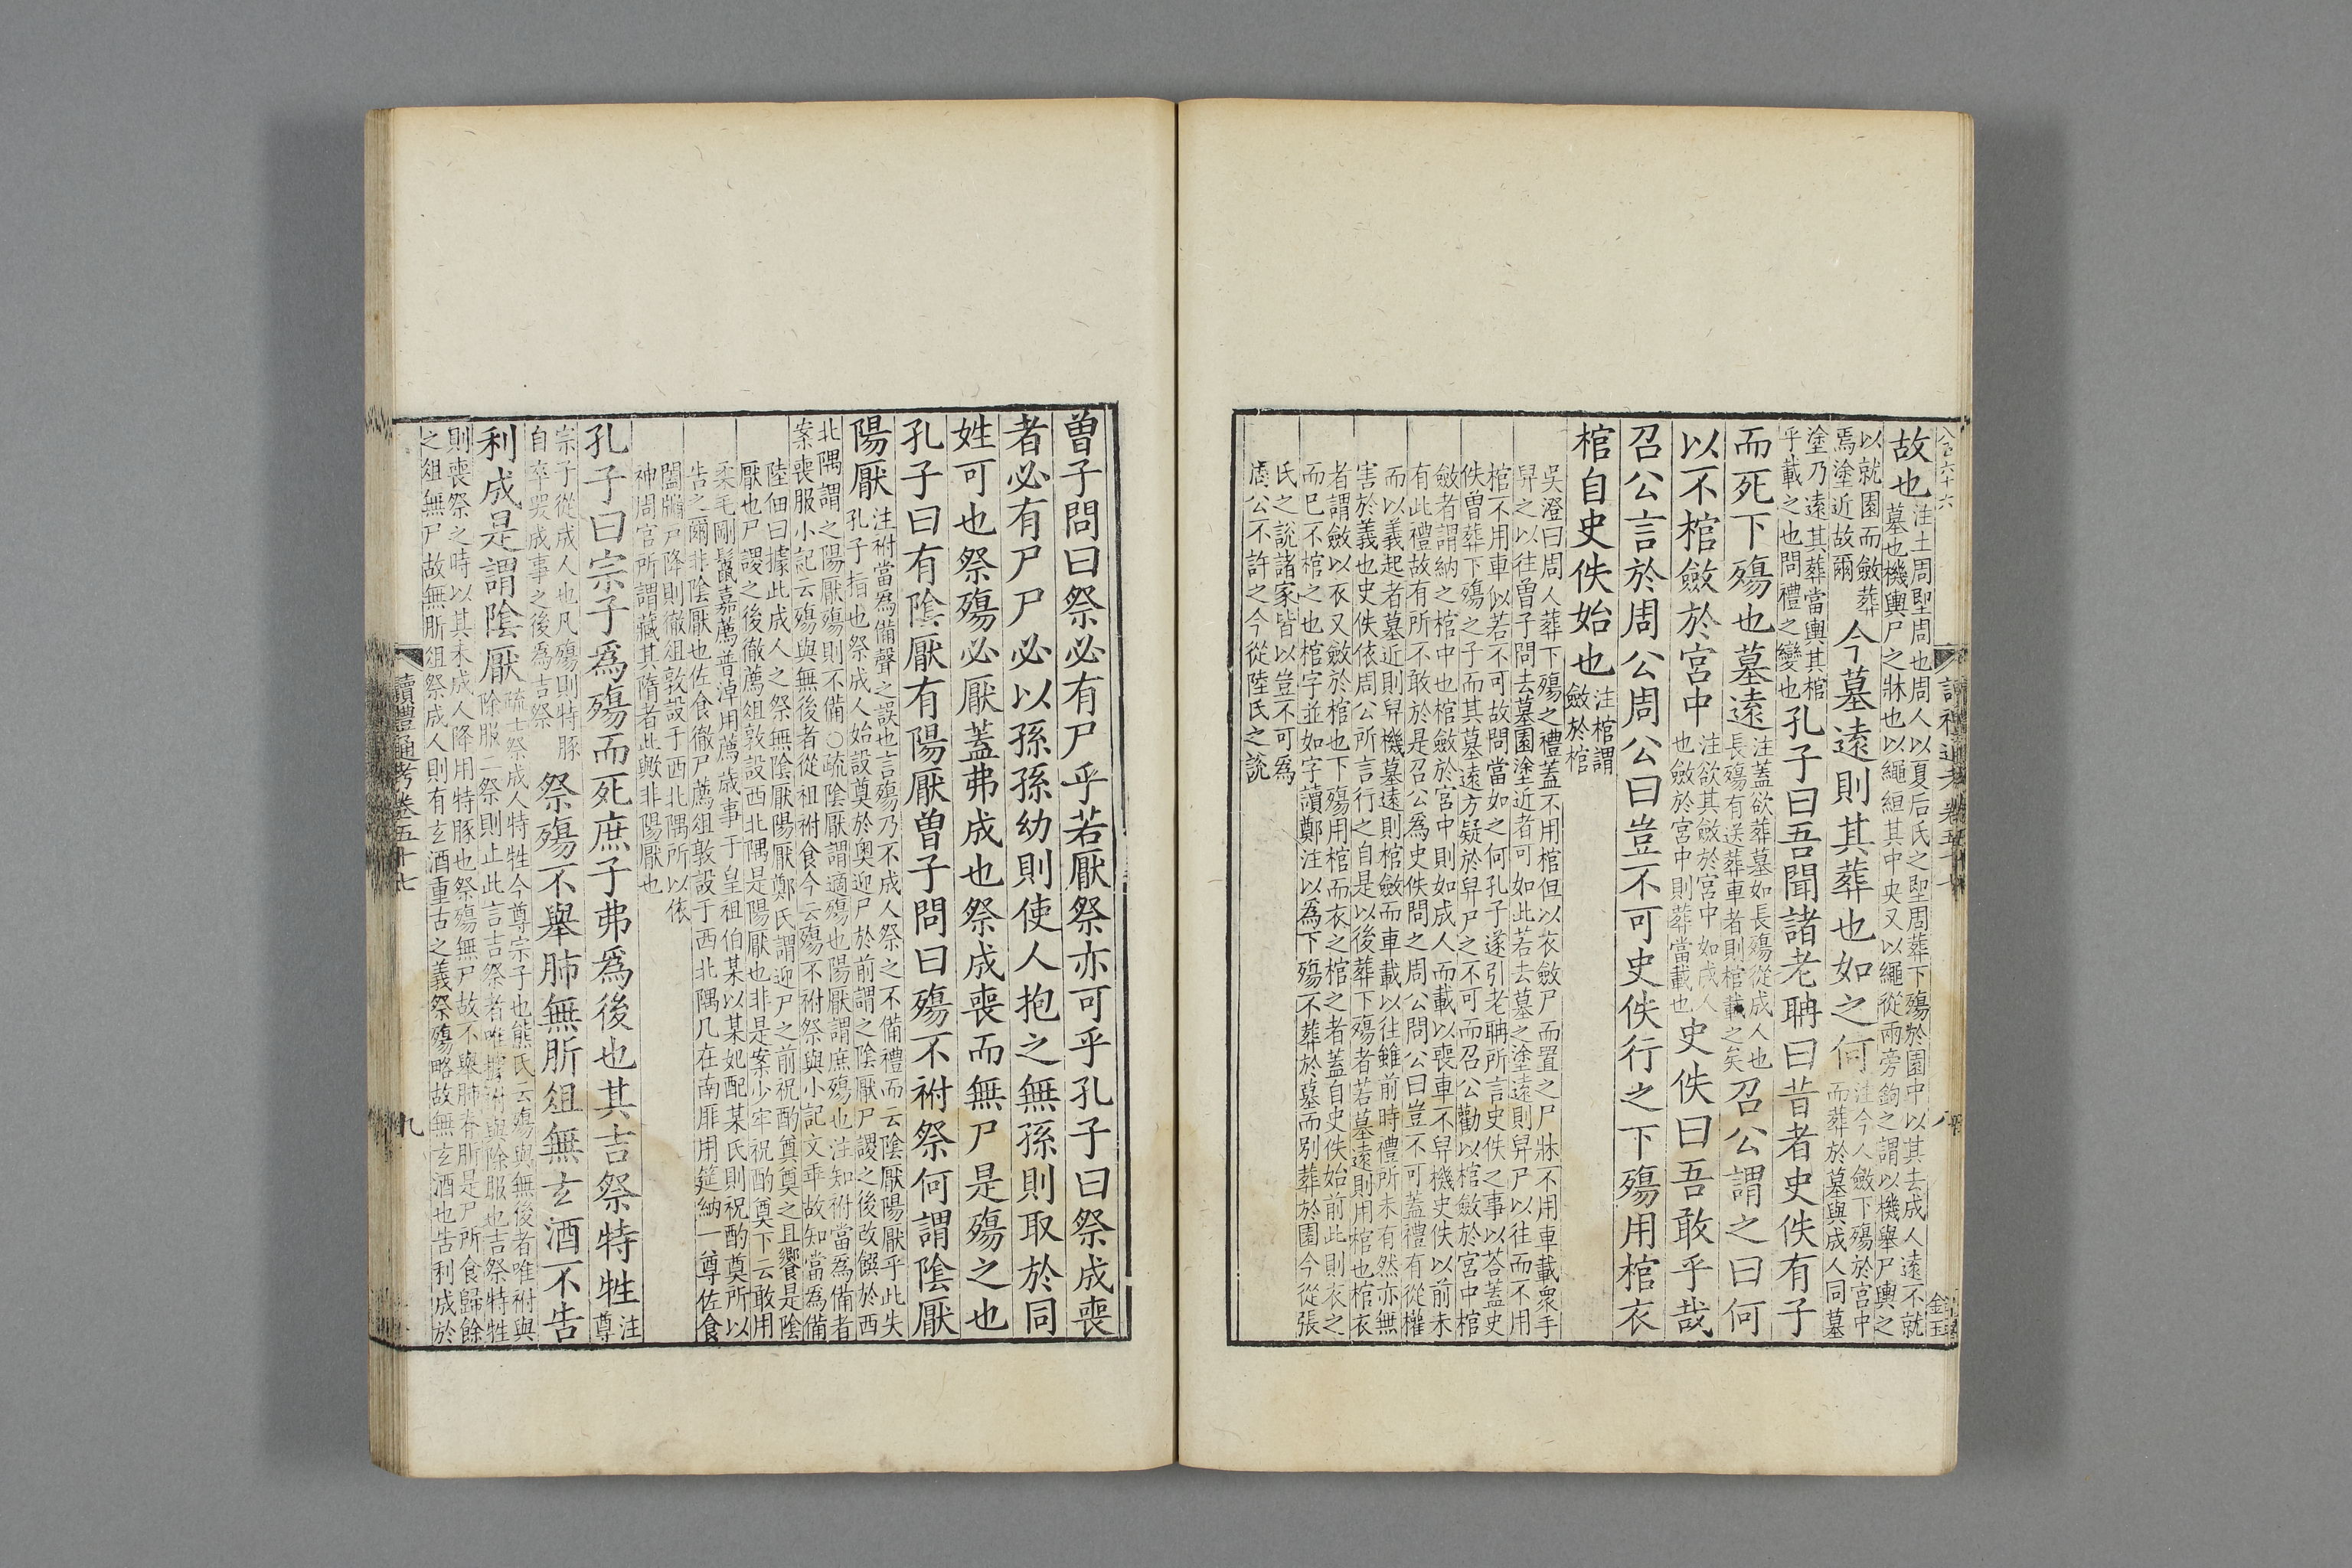 故也注土周堲周也周人以夏后氏之堲周葬下殤於園中以其去成人遠不就墓也機輿尸之牀也以繩絙其中央又以繩從兩旁鉤之謂以機舉尸輿之
以就園而斂葬焉塗近故爾今墓遠則其葬也如之何注今人斂下殤於宮中而葬於墓與成人同墓
塗乃遠其葬當輿其棺乎載之也問禮之變也孔子曰吾聞諸老聃曰昔者史佚有子
而死下殤也墓遠注蓋欲葬墓如長殤從成人也長殤有送葬車者則棺載之矣召公謂之曰何
以不棺斂於宮中注欲其斂於宮中如成人也斂於宮中則葬當載也史佚曰吾敢乎哉
召公言於周公周公曰豈不可史佚行之下殤用棺衣
棺自史佚始也注棺謂斂於棺
吳澄曰周人葬下殤之禮蓋不用棺但以衣斂尸而置之尸牀不用車載衆手
舁之以往曾子問去墓園塗近者可如此若去墓之塗遠則舁尸以往而不用
棺不用車似若不可故問當如之何孔子遂引老聃所言史佚之事以荅蓋史
佚曾葬下殤之子而其墓遠方疑於舁尸之不可而召公勸以棺斂於宮中棺
斂者謂納之棺中也棺斂於宮中則如成人而載以喪車不舁機史佚以前未
有此禮故有所不敢於是召公爲史佚問之周公問公曰豈不可蓋禮有從權
而以義起者墓近則舁機墓遠則棺斂而車載以往雖前時禮所未有然亦無
害於義也史佚依周公所言行之自是以後葬下殤者若墓遠則用棺也棺衣
者謂斂以衣又斂於棺也下殤用棺而衣之棺之者蓋自史佚始前此則衣之
而巳不棺之也棺字並如字讀鄭注以爲下殤不葬於墓而別葬於園今從張
氏之說諸家皆以豈不可爲
周公不許之今從陸氏之說
讀禮通考卷五十七
八
曾子問曰祭必有尸乎若厭祭亦可乎孔子曰祭成喪
者必有尸尸必以孫孫幼則使人抱之無孫則取於同
姓可也祭殤必厭蓋弗成也祭成喪而無尸是殤之也
孔子曰有陰厭有陽厭曾子問曰殤不祔祭何謂陰厭
陽厭注祔當爲備聲之誤也言殤乃不成人祭之不備禮而云陰厭陽厭乎此失孔子指也祭成人始設奠於奧迎尸於前謂之陰厭尸謖之後改饌於西
北隅謂之陽厭殤則不備○疏陰厭謂適殤也陽厭謂庶殤也注知祔當爲備者案喪服小記云殤與無後者從祖祔食今云殤不祔祭與小記文乖故知當爲備
陸佃曰據此成人之祭無陰厭陽厭鄭氏謂迎尸之前祝酌奠奠之且饗是陰
厭也尸謖之後徹薦俎敦設西北隅是陽厭也非是案少牢祝酌奠下云敢用
柔毛剛鬣嘉薦普淖用薦歲事于皇祖伯某以某妃配某氏則祝酌奠所以
告之爾非陰厭也佐食徹尸薦俎敦設于西北隅几在南厞用筵納一尊佐食
闔牖戶降則徹俎敦設于西北隅所以依
神周官所謂藏其隋者此歟非陽厭也
孔子曰宗子爲殤而死庶子弗爲後也其吉祭特牲注尊
宗子從成人也凡殤則特豚自卒哭成事之後爲吉祭祭殤不舉肺無肵俎無玄酒不告
利成是謂陰厭疏士祭成人特牲今尊宗子也熊氏云殤與無後者唯祔與除服二祭則止此言吉祭者唯據祔與除服也吉祭特牲
則喪祭之時以其未成人降用特豚也祭殤無尸故不舉肺脊肵是尸所食歸餘之俎無尸故無肵俎祭成人則有玄酒重古之義祭殤略故無玄酒也告利成於
讀禮通考卷五十七
九